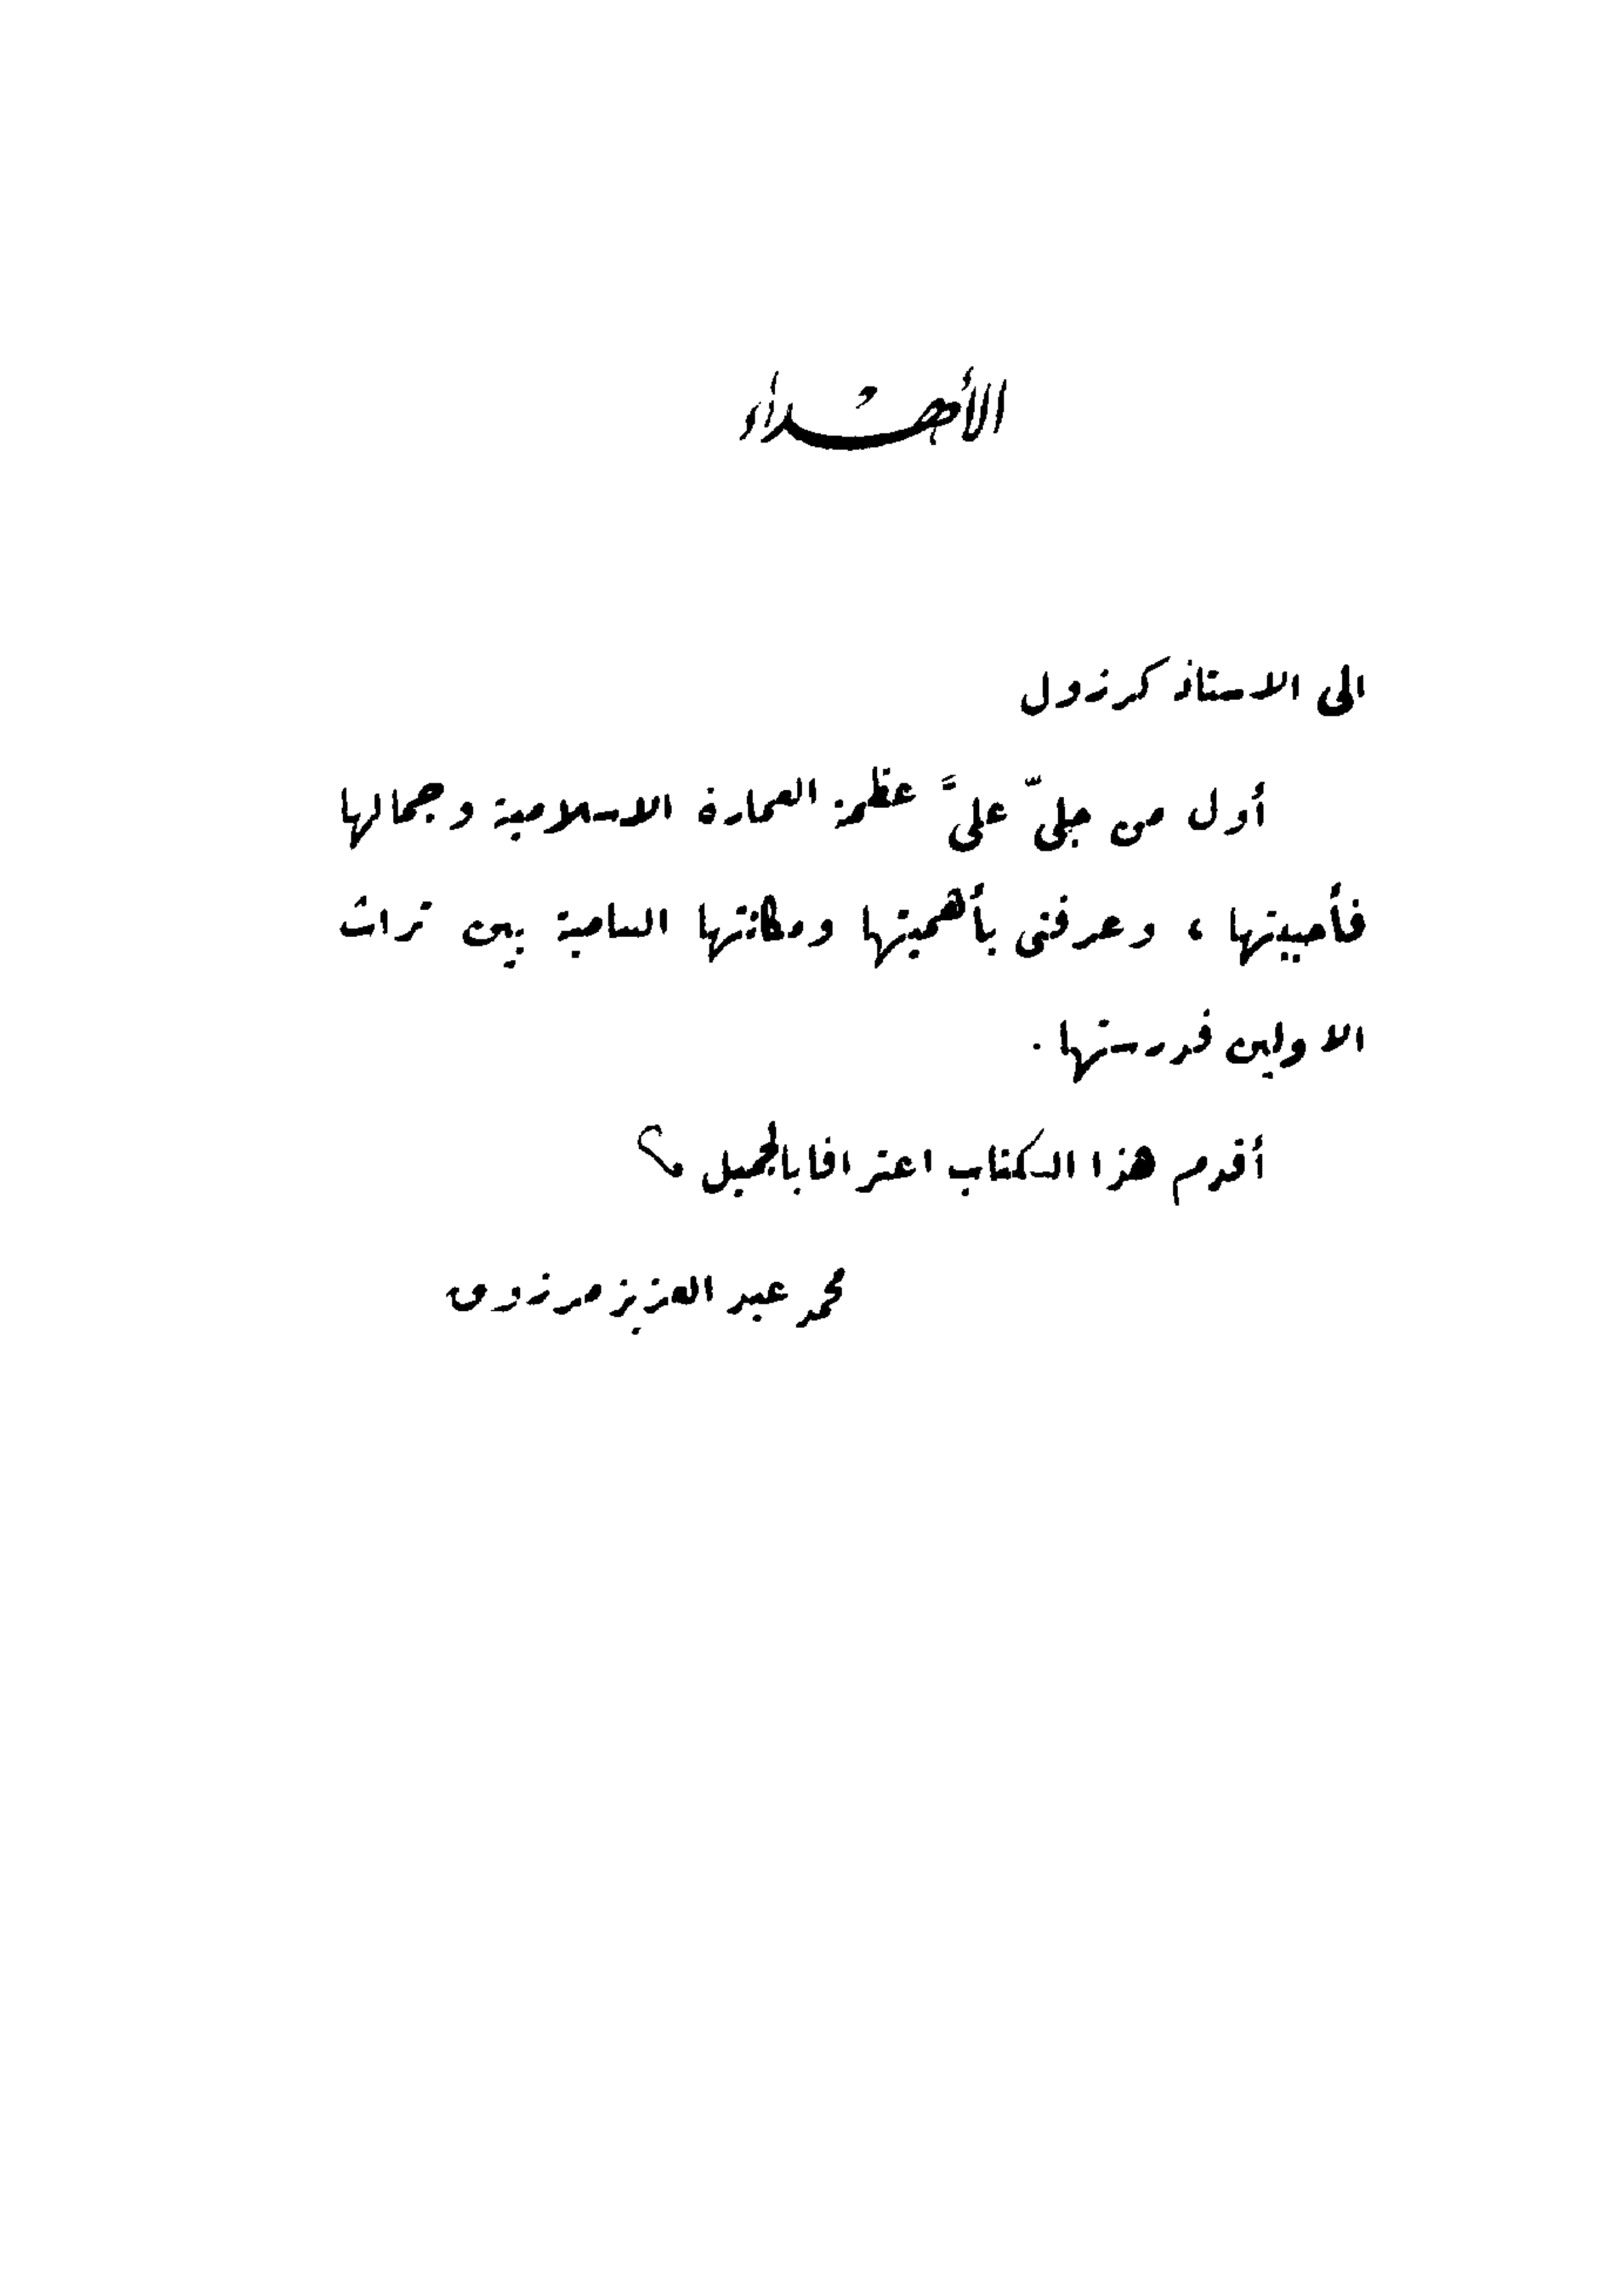 الأهداء
الى الاستاذ كرزول
أول من جلىّ علىَّ عظمة العمارة الاسلامية وجمالها
فأحببتها ، وعرفنى بأهميتها ومكانتها السامية بين تراث
الاولين فدرستها .
أقدم هذا الكتاب اعترافا بالجميل
محمد عبد العزيز مرزوق